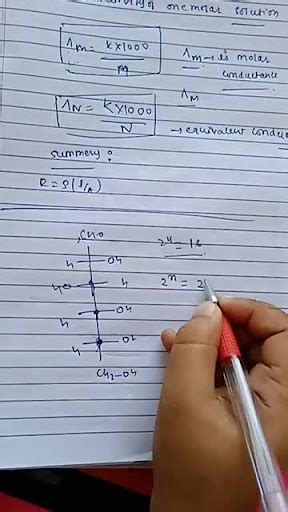 of one molar solution
Λm = K×1000 / M
Λm → is molar
conductance
ΛM
ΛN = K×1000 / N
→ equivalent conduc
summery :
R = ρ(l/A)
¹CHO
H OH
HO H
H OH
H OH
CH2-OH
2⁴ = 16
2ⁿ = 2